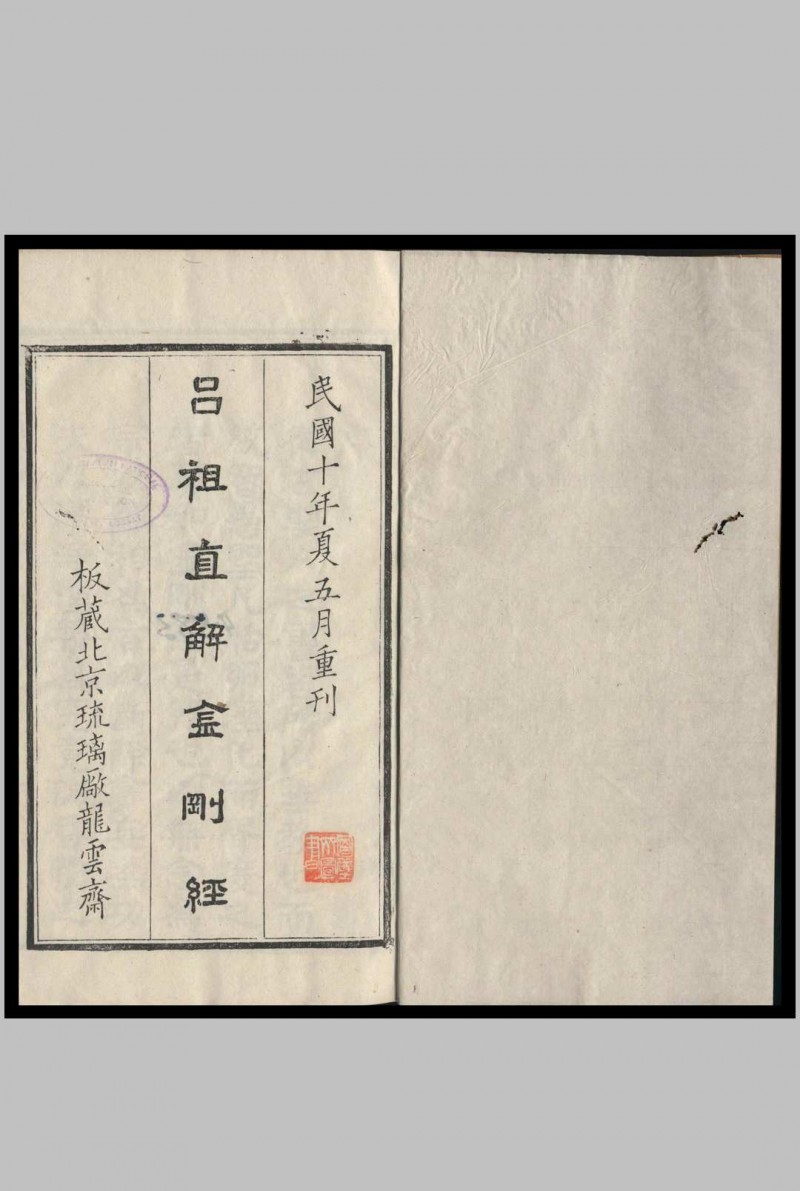 民國十年夏五月重刊
呂祖直解金剛經
板藏北京琉璃廠龍雲齋